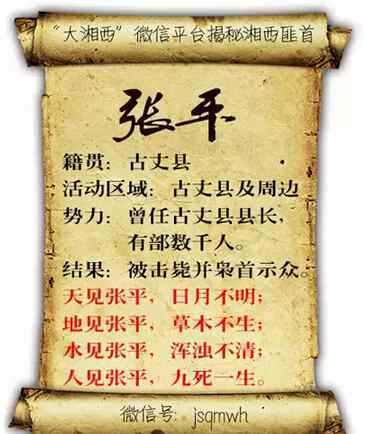 “大湘西”微信平台揭秘湘西匪首
张平
籍贯：古丈县
活动区域：古丈县及周边
势力：曾任古丈县县长，
有部数千人。
结果：被击毙并枭首示众。
天见张平，日月不明；
地见张平，草木不生；
水见张平，浑浊不清；
人见张平，九死一生。
微信号：jsqmwh